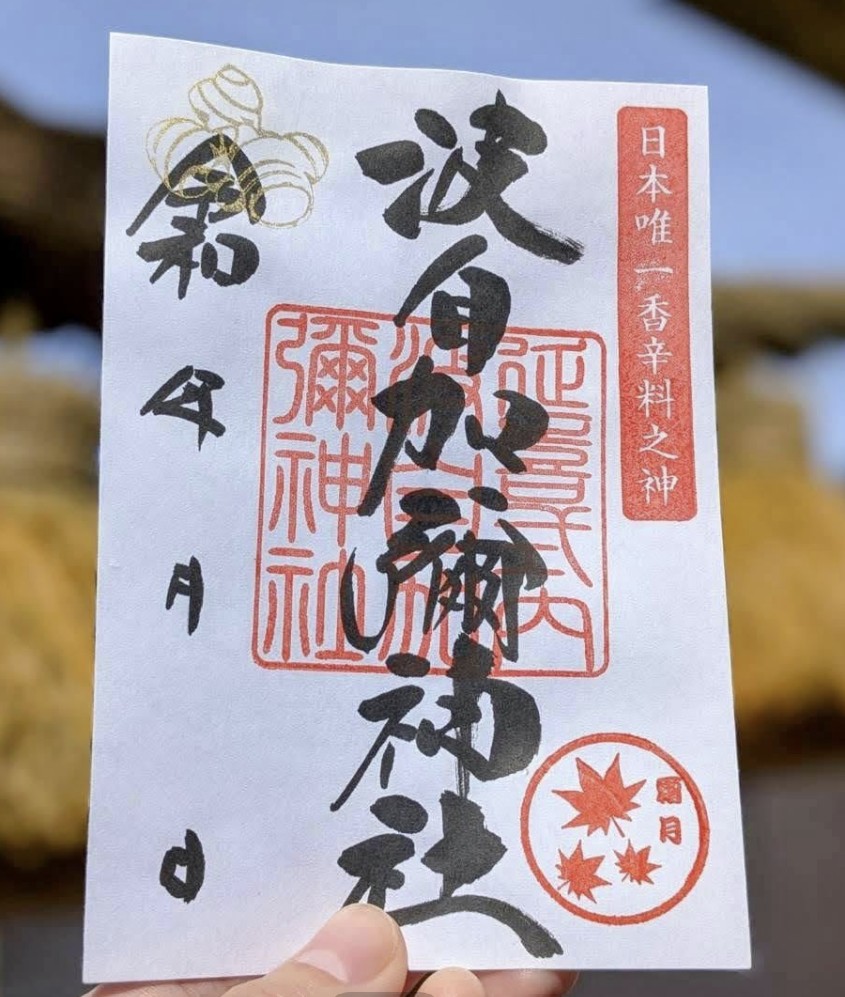 日本唯一香辛料之神
波自加彌神社
延喜式内
波自加
彌神社
霜月
令和 年 月 日